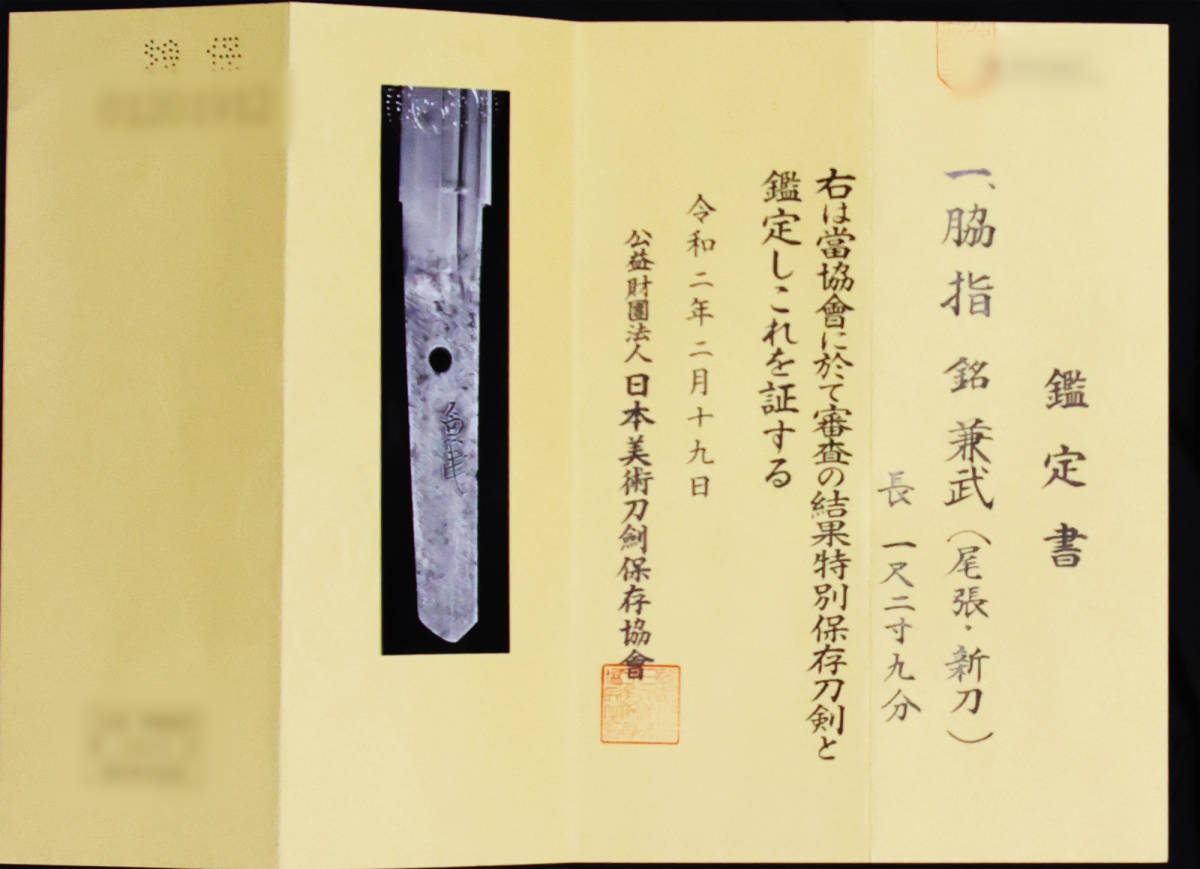 鑑定書
一、脇指 銘 兼武(尾張・新刀)
長 一尺二寸九分
右は當協會に於て審査の結果特別保存刀剣と
鑑定しこれを証する
令和二年二月十九日
公益財團法人日本美術刀劍保存協會
兼武